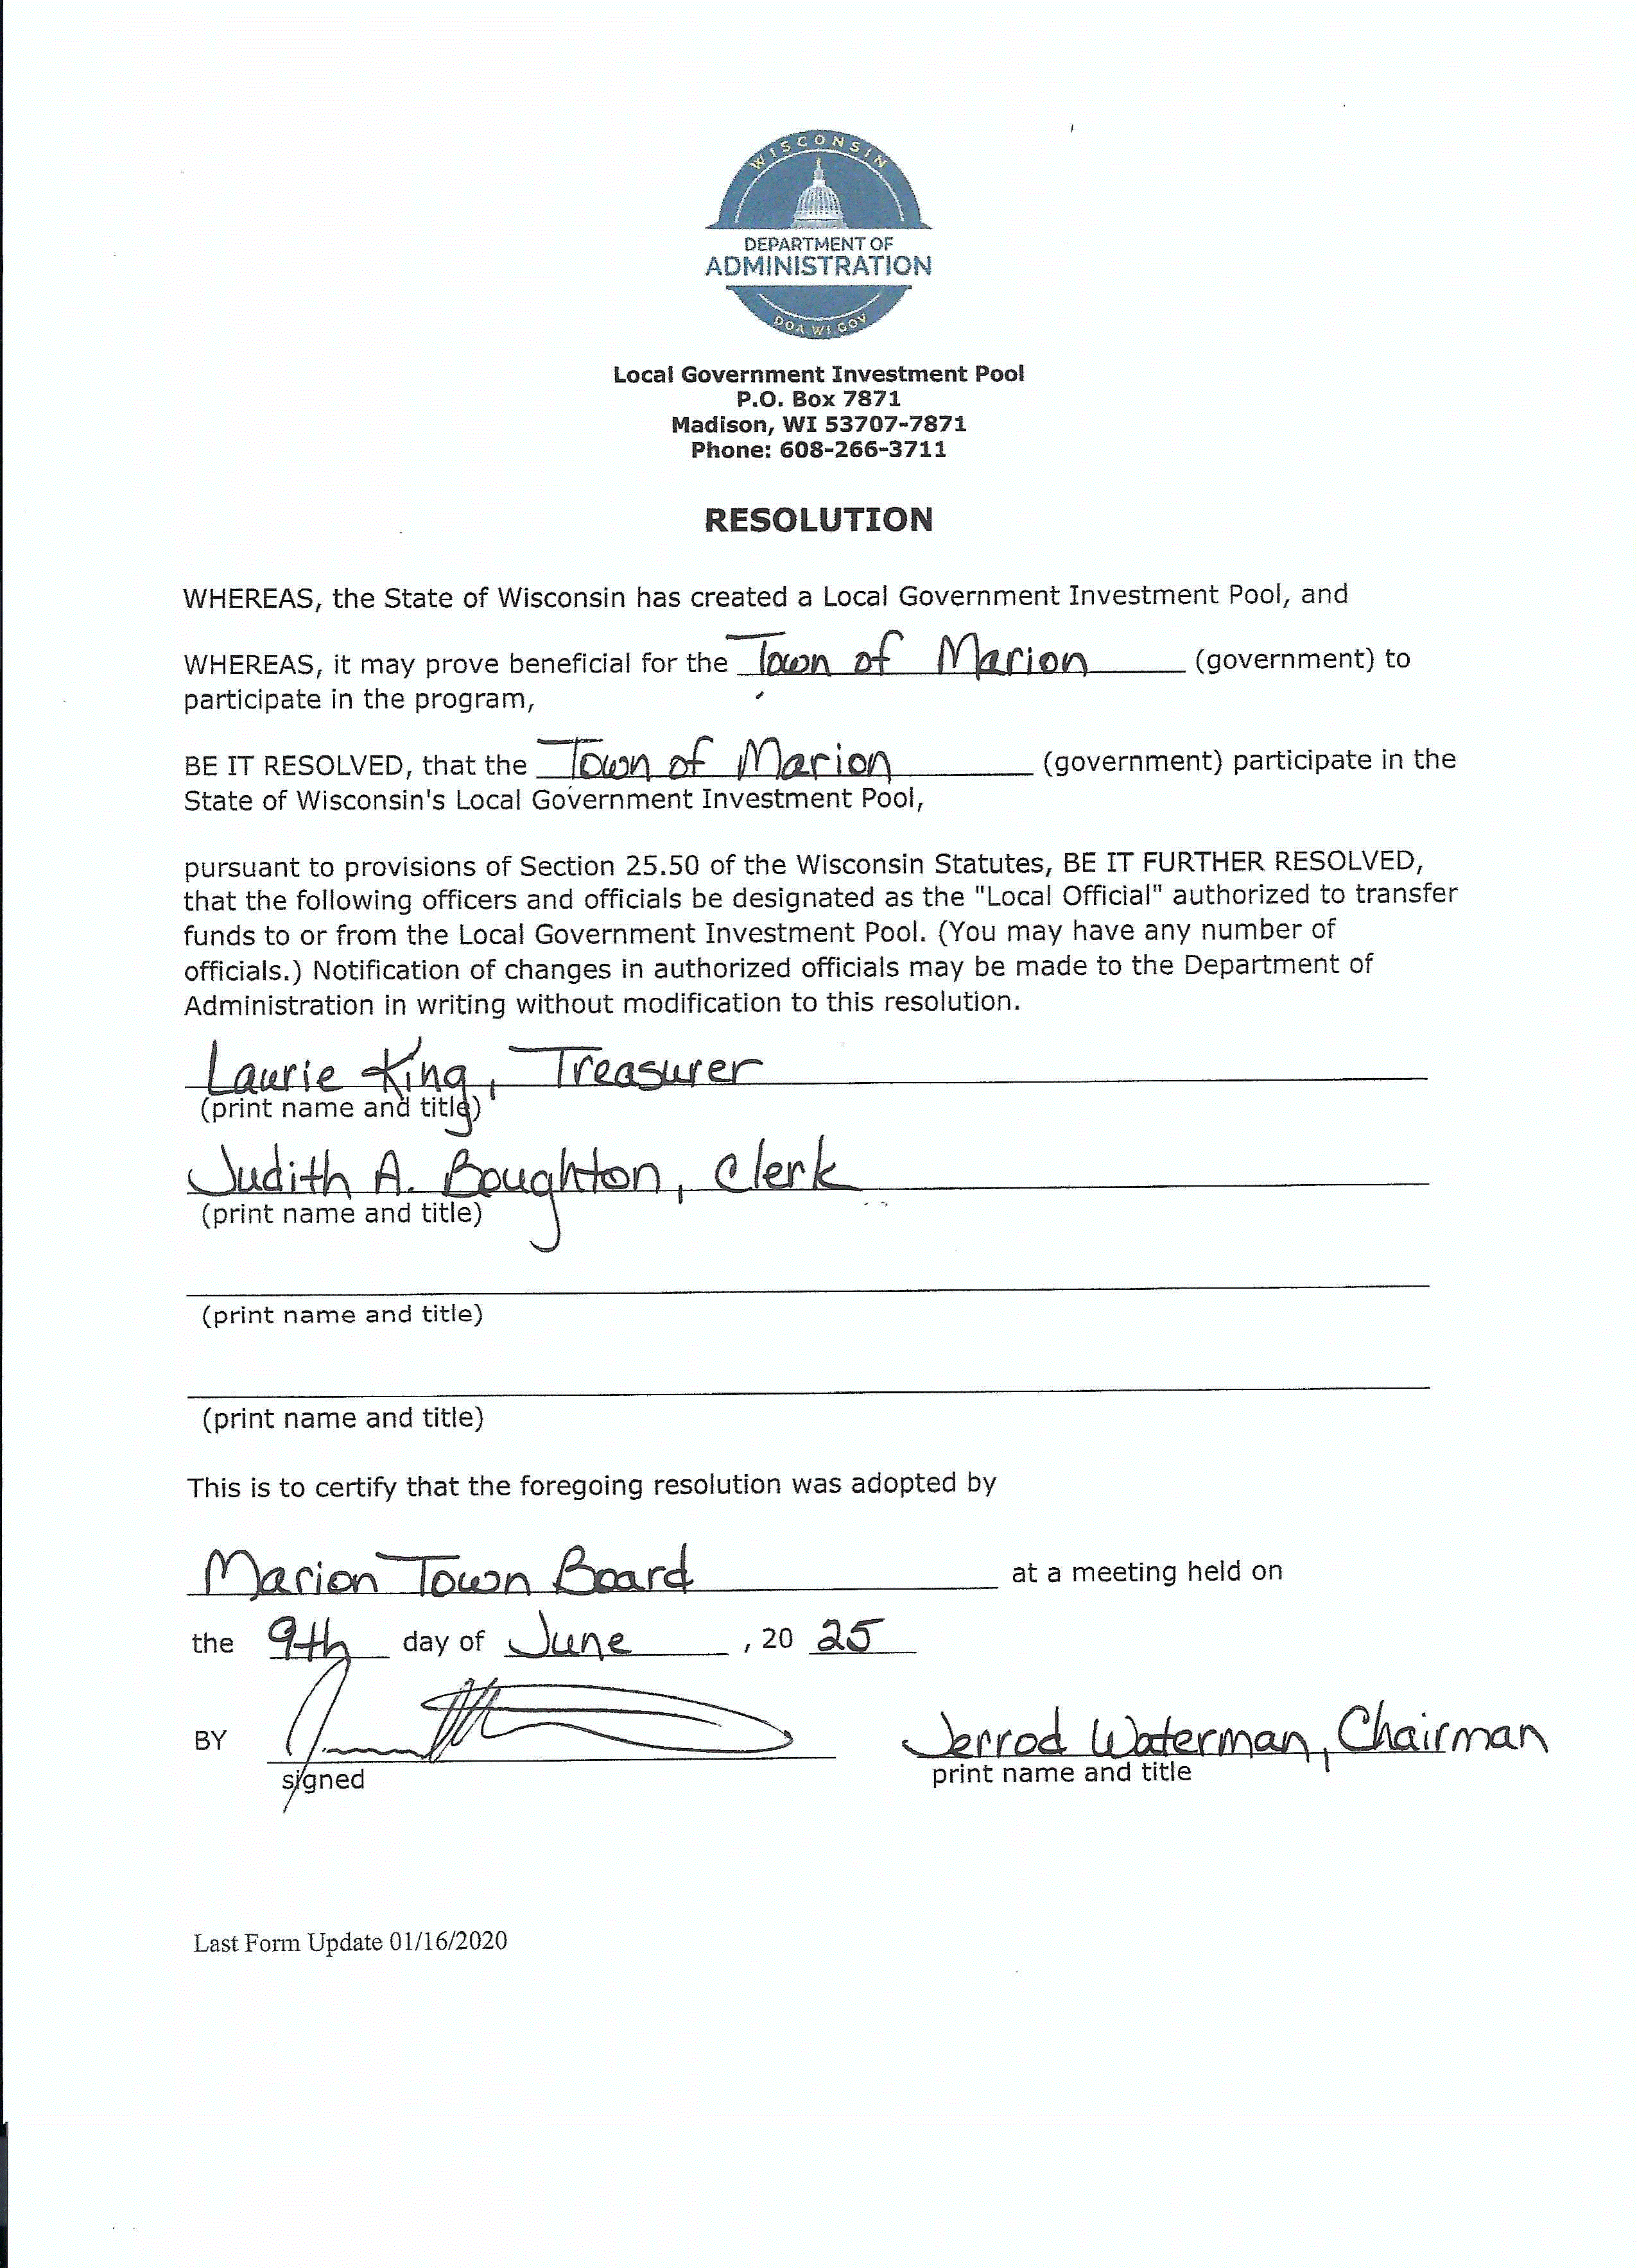 WISCONSIN
DEPARTMENT OF
ADMINISTRATION
DOA.WI.GOV
Local Government Investment Pool
P.O. Box 7871
Madison, WI 53707-7871
Phone: 608-266-3711
RESOLUTION
WHEREAS, the State of Wisconsin has created a Local Government Investment Pool, and
WHEREAS, it may prove beneficial for the Town of Marion (government) to
participate in the program,
BE IT RESOLVED, that the Town of Marion (government) participate in the
State of Wisconsin's Local Government Investment Pool,
pursuant to provisions of Section 25.50 of the Wisconsin Statutes, BE IT FURTHER RESOLVED,
that the following officers and officials be designated as the "Local Official" authorized to transfer
funds to or from the Local Government Investment Pool. (You may have any number of
officials.) Notification of changes in authorized officials may be made to the Department of
Administration in writing without modification to this resolution.
Laurie King, Treasurer
(print name and title)
Judith A. Boughton, Clerk
(print name and title)
(print name and title)
(print name and title)
This is to certify that the foregoing resolution was adopted by
Marion Town Board at a meeting held on
the 9th day of June, 20 25
BY Jerrod Waterman, Chairman
signed print name and title
Last Form Update 01/16/2020